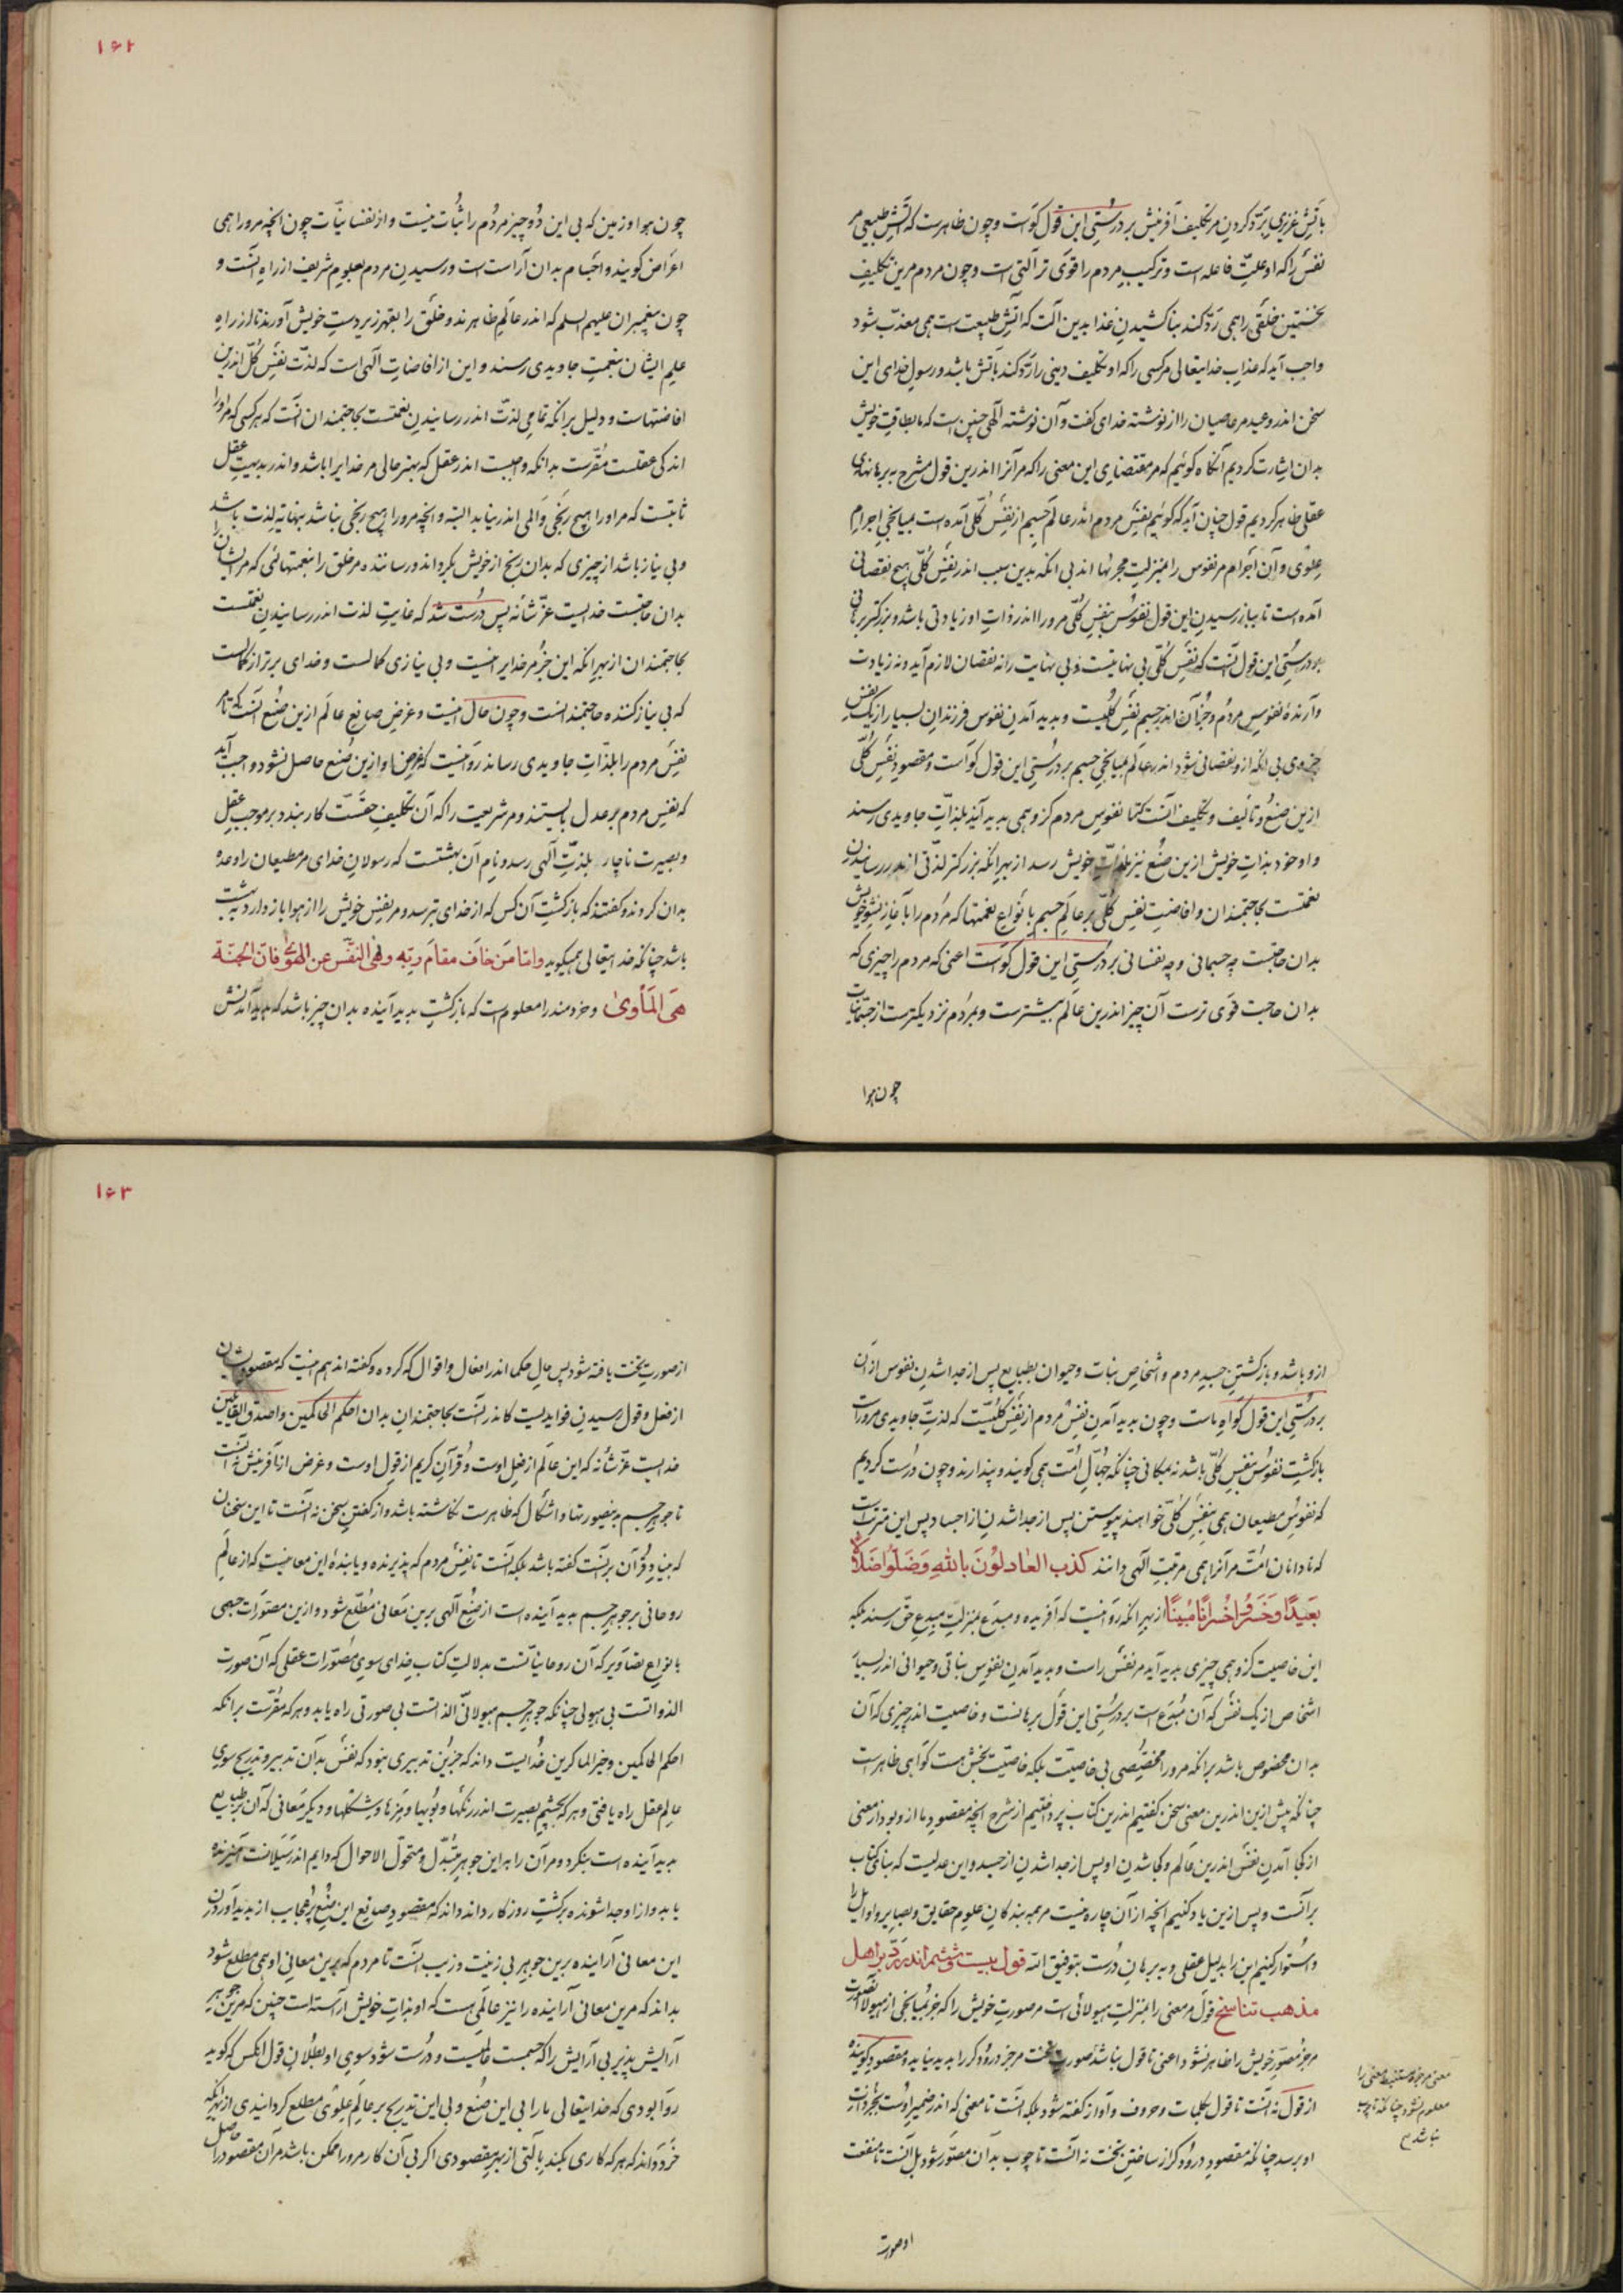 باتش غریزی بَرَدّ کردن مر تکلیف آفرینش بر درستی این قول گواست و چون ظاهرست که آتش طبیعی مر
نفس را که او علت فاعله است و ترکیب مردم را قوی تر آلتی است و چون مردم مرین تکلیف
نخستین خلقی را همی رَدّ کند بناکشیدن غذا بدین آلت که آتش طبیعت است همی معذّب شود
واجب آید که عذاب خدایتعالی مر کسی را که او تکلیف دینی را رَدّ کند باتش باشد و رسول خدای این
سخن اندر وعید مر عاصیان را از نوشته خدای گفت و آن نوشته الهی چنین است که ما بطاقت خویش
بدان اشارت کردیم آنگاه گوئیم که مر مقتضای این معنی را که مر آنرا اندرین قول مشرح ببرهانهای
عقلی ظاهر کردیم قول چنان آید که گوئیم نفس مردم اندر عالم جسم از نفس کلّی آمده است بمیانجی اجرام
علوی و آن اجرام مر نفوس را بمنزلت مجریها اند بی انکه بدین سبب اندر نفس کلّی هیچ نقصانی
آمده است تا بباز رسیدن این قول نفوس بنفس کلّی مرورا اندر ذات او زیادتی باشد و بزرگتر برهانی
بر درستی این قول آنست که نفس کلّی بی نهایتست و بی نهایت را نه نقصان لازم آید و نه زیادت
و آرنده نفوس مردم و جز آن اندر جسم نفس کلیست و بدید آمدن نفوس فرزندان بسیار از یک نفس
جزوی بی انکه ازو نقصانی شود اندر عالم بمیانجی جسم بر درستی این قول گواست و مقصود نفس کلّی
ازین صنع و تألیف و تکلیف آنست که تا نفوس مردم کزو همی بدید آید بلذّات جاویدی رسند
و او خود بذات خویش ازین صنع نیز بلذّات خویش رسد از بهر انکه بزرگتر لذّتی اندر رسانیدن
نعمتست بحاجتمندان و افاضت نفس کلّی بر عالم جسم بانواع نعمتها که مردم را باغاز نشو خویش
بدان حاجتست چه جسمانی و چه نفسانی بر درستی این قول گواست اعنی که مردم را چیزی که
بدان حاجت قوی ترست آن چیز اندرین عالم بیشترست و بمردم نزدیکترست از جسمانیات
چون هوا
۱۶۲
چون هوا و زمین که بی این دو چیز مردم را ثبات نیست و از نفسانیّات چون انچه مرورا همی
اعراض گویند و اجسام بدان آراسته است و رسیدن مردم بعلوم شریف از راه آنست و
چون پیغمبران علیهم السلم که اندر عالم ظاهرند و خلق را بقهر زیر دست خویش آورند تا از راه
علم ایشان بنعمت جاویدی رسند و این از افاضات الهی است که لذّت نفس کلّ اندرین
افاضتهاست و دلیل بر انکه تمامی لذّت اندر رسانیدن نعمتست بحاجتمندان آنست که هر کسی که مر او را
اندکی عقلست مقرّست بدانکه واجبست اندر عقل که بهتر حالی مر خدایرا باشد و اندر بدیهت عقل
ثابتست که مر اورا هیچ رنجی و المی اندر نیابد البته و انچه مرورا هیچ رنجی نباشد بنهایت لذت باشد
و بی نیاز باشد از چیزی که بدان رنج از خویش بگرداند و رساننده مر خلق را بنعمتهائی که مر ایشان را
بدان حاجتست خدایست عزّ شأنه پس درست شد که غایت لذت اندر رسانیدن نعمتست
بحاجتمندان از بهر انکه این جز مر خدایرا نیست و بی نیازی کمالست و خدای برتر از کمالست
که بی نیاز کننده حاجتمندانست و چون حال اینست و غرض صانع عالم ازین صنع آنست که تا مر
نفس مردم را بلذّات جاویدی رساند روا نیست که غرض او ازین صنع حاصل نشود و واجب آید
که نفس مردم بر عدل بایستند و مر شریعت را که آن تکلیف حقّست کار بندد بر موجب عقل
و بصیرت ناچار بلذّت الهی رسد و نام آن بهشتست که رسولان خدای مر مطیعان را وعده
بدان کردند و گفتند که بازگشت آن کس که از خدای بترسد و مر نفس خویش را از هوا باز دارد به بهشت
باشد چنانکه خدایتعالی همیگوید وامّا مَن خافَ مقامَ ربّهِ ونَهَی النفسَ عن الهَوی فان الجنّة
هیَ المَأوی و خردمند را معلومست که بازگشت بدید آینده بدان چیز باشد که پدید آمدنش
ازو باشد و بازگشتن جسد مردم و اشخاص نبات و حیوان بطبایع پس از جدا شدن نفوس از آن
بر درستی این قول گواه ماست و چون بدید آمدن نفس مردم از نفس کلّیست که لذّت جاویدی مروراست
بازگشت نفوس بنفس کلّی باشد نه بمکانی چنانکه جهّال امّت همی گویند و پندارند و چون درست کردیم
که نفوس مطیعان همی بنفس کلّی خواهند پیوستن پس از جدا شدن از اجساد پس این منزلتست
که نادانان امّت مر آنرا همی مرتبت الهی دانند کذب العادلونَ باللهِ وَضَلّوا ضَلالاً
بَعیداً وخَسِروا خُسراناً مُبیناً از بهر انکه روا نیست که آفریده و مبدَع بمنزلت مبدع حقّ رسند بلکه
این خاصیت کزو همی چیزی بدید آید مر نفس راست و بدید آمدن نفوس نباتی و حیوانی اندر بسیار
اشخاص از یک نفس که آن مبدَع است بر درستی این قول برهانست و خاصیت اندر چیزی که آن
بدان مخصوص باشد بر انکه مرورا مخصّصی بی خاصیّت بلکه خاصیّت بخش هست گواهی ظاهرست
چنانکه پیش ازین اندرین معنی سخن گفتیم اندرین کتاب پرداختیم از شرح انچه مقصود ما ازو بود از معنی
از کجا آمدن نفس اندرین عالم و کجا شدن او پس از جدا شدن از جسد و این حدّیست که بنای کتاب
بر آنست و پس ازین یاد کنیم انچه از آن چاره نیست مر جویندگان علوم حقایق و بصایر و اوایل را
و استوار کنیم این را بدلیل عقلی و ببرهان درست بتوفیق الله قول بیست و ششم اندر ردّ بر اهل
مذهب تناسخ قول مر معنی را بمنزلت هیولائی است مر صورت خویش را که جز بمیانجی از هیولا آن صورت
مر جز مصوّر خویش را ظاهر نشود اعنی تا قول نباشد صورت تخت مر جز درودگر را پدید نیاید و مقصود گوینده
از قول نه آنست تا قول بکلمات و حروف و آواز گفته شود بلکه آنست تا معنی که اندر ضمیر اوست
او برسد چنانکه مقصود درودگر از ساختن تخت نه آنست تا چوب بدان مصوّر شود بل آنست تا منفعت
معنی مر جز مستنبط معنی را
معلوم نشود چنانکه تا چوب
نباشد
او صورت
۱۶۳
از صورت تخت یافته شود پس حال حکما اندر افعال و اقوال که کرده و گفته اند هم اینست که مقصودشان
از فعل و قول رسیدن فوایدیست کاندر آنست بحاجتمندان بدان احکم الحاکمین و اصدق القائلین
خدایست عزّ شأنه که این عالم از فعل اوست و قرآن کریم از قول اوست و غرض از آفرینش نه آنست
تا جوهر جسم بدین صورتها و اشکال که ظاهرست نگاشته باشد و از گفتن سخن نه آنست تا این سخنان
که بنیاد قرآن بر آنست گفته باشد بلکه آنست تا نفس مردم که پذیرنده و یابنده این معانیست که از عالم
روحانی بر جوهر جسم بدید آینده است از صنع الهی برین معانی مطّلع شود و ازین مصوّرات جسمی
بانواع تصاویر که آن روحانیانست بدلالت کتاب خدای سوی مصوّرات عقلی که آن صورت
الذّواتست بی هیولی چنانکه جوهر جسم هیولانیّ الذّاتست بی صورتی راه یابد و هر که مقرّست بر انکه
احکم الحاکمین و خیر الماکرین خدایست داند که جز این تدبیری نبود که نفس بدان تدبیر و تدریج سوی
عالم عقل راه یافتی و هر که بچشم بصیرت اندر رنگها و بویها و مزها و شکلها و دیگر معانی که آن بر طبایع
بدید آینده است بنگرد و مر آن را بر این جوهر متبدّل و متحوّل الاحوال که دایم اندر سیلانست آمیزنده
یابد و از او جدا شونده بر گشت روزگار داند که مقصود صانع این صنع پر عجایب از بدید آوردن
این معانی آراینده برین جوهر بی زینت و زیب آنست تا مردم که برین معانی او همی مطلع شود
بداند که مرین معانی آراینده را نیز عالمی هست که او بذات خویش آراسته است چنین که مرین جوهر
آرایش پذیر بی آرایش را که جسمست عالمیست و درست شود سوی او بطلان قول انکس که گوید
روا بودی که خدایتعالی ما را بی این صنع و بی این تدریج بر عالم علوی مطلع گردانیدی از بهر انکه
خرد داند که هر که کاری بکند بآلتی از بهر مقصودی اگر بی آن کار مرورا ممکن باشد مر آن مقصود را حاصل